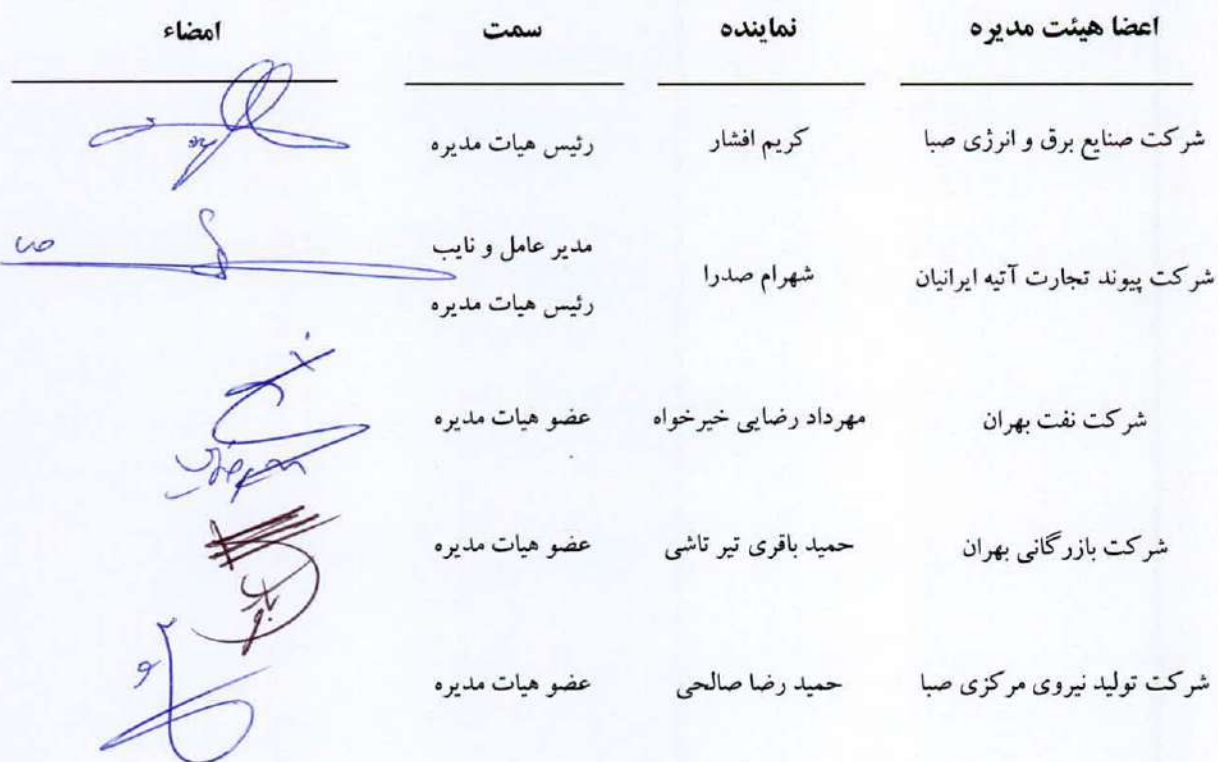 اعضا هیئت مدیره	نماینده	سمت	امضاء
شرکت صنایع برق و انرژی صبا	کریم افشار	رئیس هیات مدیره
شرکت پیوند تجارت آتیه ایرانیان	شهرام صدرا	مدیر عامل و نایب
رئیس هیات مدیره
شرکت نفت بهران	مهرداد رضایی خیرخواه	عضو هیات مدیره
شرکت بازرگانی بهران	حمید باقری تیر تاشی	عضو هیات مدیره
شرکت تولید نیروی مرکزی صبا	حمید رضا صالحی	عضو هیات مدیره